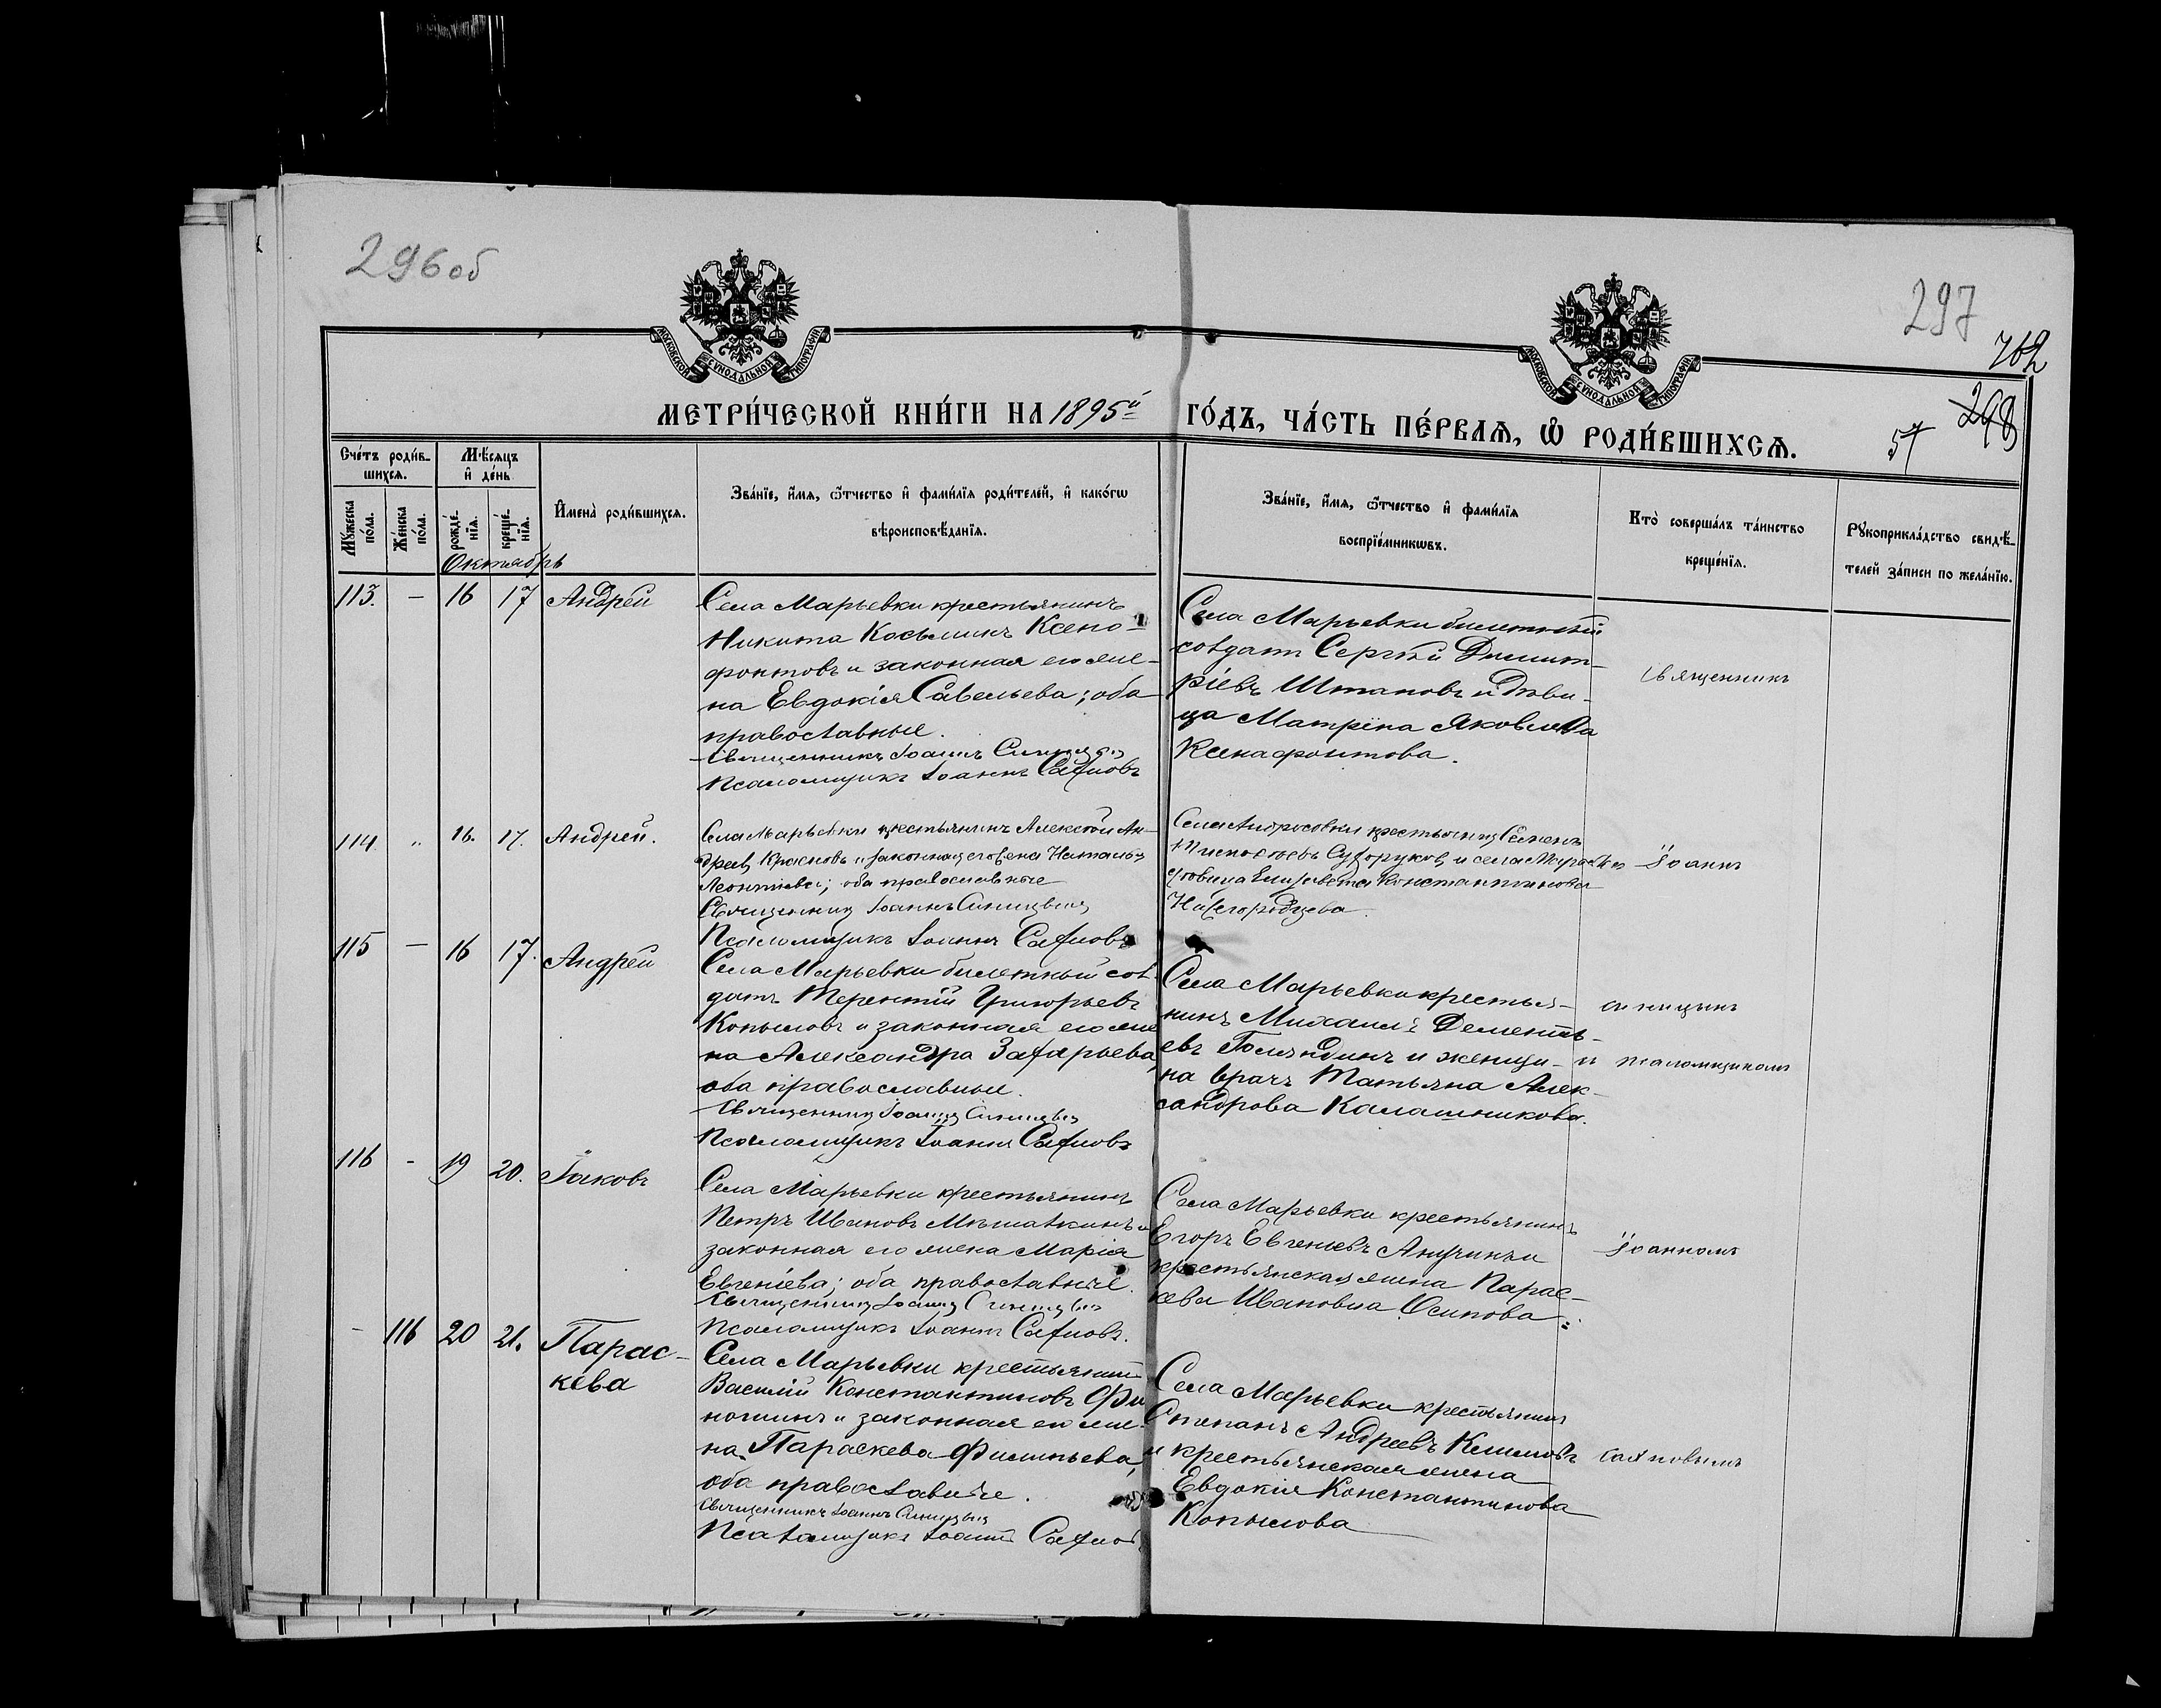 296об
297
762
298
57
МОСКОВСКОЙ СУНОДАЛЬНОЙ ТИПОГРАФІИ
МОСКОВСКОЙ СУНОДАЛЬНОЙ ТИПОГРАФІИ
МЕТРИ́ЧЕСКОЙ КНИ́ГИ НА 1895й ГО́ДЪ, ЧА́СТЬ ПЕ́РВАѦ, Ѡ҆ РОДИ́ВШИХСѦ.
Сче́тъ роди́в-
шихсѧ.
Мꙋ́жеска по́ла.
Же́нска по́ла.
Мѣ́сяцъ
и҆ де́нь
рожде́-
нїѧ.
креще́-
нїѧ.
И҆мена̀ роди́вшихсѧ.
Зва́нїе, и҆́мѧ, ѻ҆́тчество и҆ фами́лїѧ роди́телей, и҆ како́гѡ
вѣроисповѣ́данїѧ.
Зва́нїе, и҆́мѧ, ѻ҆́тчество и҆ фами́лїѧ
воспрїе́мникѡвъ.
Кто̀ соверша́лъ та́инство
креще́нїѧ.
Рꙋкоприкла́дство свидѣ́-
телей за́писи по жела́нїю.
Октябрь
113. — 16 17 Андрей
Села Марьевки крестьянинъ
Никита Косьминъ Ксено-
фонтовъ и законная его же-
на Евдокія Савельева; оба
православные.
Священникъ Іоаннъ Синицынъ
Псаломщикъ Іоаннъ Сахновъ
Села Марьевки билетный
солдатъ Сергѣй Димит-
ріевъ Штановъ и дѣви-
ца Матрёна Яковлева
Ксенафонтова.
Священникъ
114 " 16. 17. Андрей.
Села Марьевки крестьянинъ Алексѣй Ан-
дреевъ Красновъ и законная его жена Наталья
Леонтіева; оба православные
Священникъ Іоаннъ Синицынъ
Псаломщикъ Іоаннъ Сахновъ
Села Андросовки крестьянинъ Семенъ
Сухоруковъ и села Марьевки
дѣвица Елизавета Константинова
Нижегородцева.
Іоаннъ
115 — 16 17. Андрей
Села Марьевки билетный сол-
датъ Терентій Григорьевъ
Копыловъ и законная его же
на Александра Захарьева,
оба православные.
Священникъ Іоаннъ Синицынъ
Псаломщикъ Іоаннъ Сахновъ
Села Марьевки крестья-
нинъ Михаилъ Дементь-
евъ и женщи-
на врачъ Татьяна Алек-
сандрова Калашникова.
Синицынъ
и псаломщикомъ
116 - 19 20. Іаковъ
Села Марьевки крестьянинъ
Петръ Ивановъ Мѣшалкинъ и
законная его жена Марія
Евгеніева; оба православные.
Священникъ Іоаннъ Синицынъ
Псаломщикъ Іоаннъ Сахновъ.
Села Марьевки крестьянинъ
Егоръ Евгеніевъ Анучинъ и
крестьянская жена Парас-
кева Ивановна Осипова.
Іоанномъ
- 116 20 21. Парас-
кева
Села Марьевки крестьянинъ
Василій Константиновъ Фи
ногинъ и законная его же-
на Параскева Филипьева,
оба православные.
Священникъ Іоаннъ Синицынъ
Псаломщикъ Іоаннъ Сахновъ
Села Марьевки крестьянинъ
Степанъ Андреевъ Климовъ
и крестьянская жена
Евдокія Константинова
Копылова
Сахновымъ